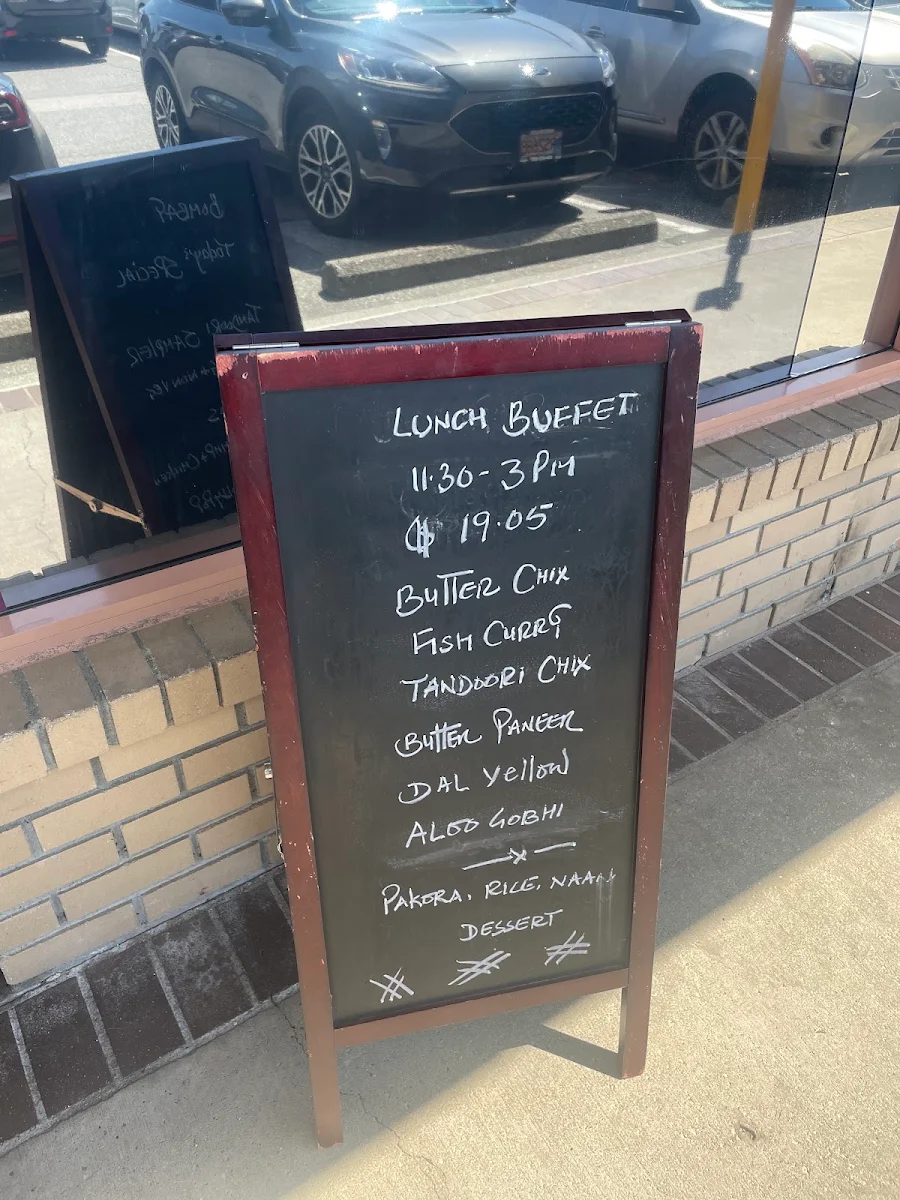 LUNCH BUFFET
11·30 - 3 PM
$ 19·05
BUTTER CHIX
FISH CURRY
TANDOORI CHIX
BUTTER PANEER
DAL Yellow
ALOO GOBHI
PAKORA, RICE, NAAN
DESSERT
BOMBAY
Today's
SPECIAL
TANDOORI
SAMPLER